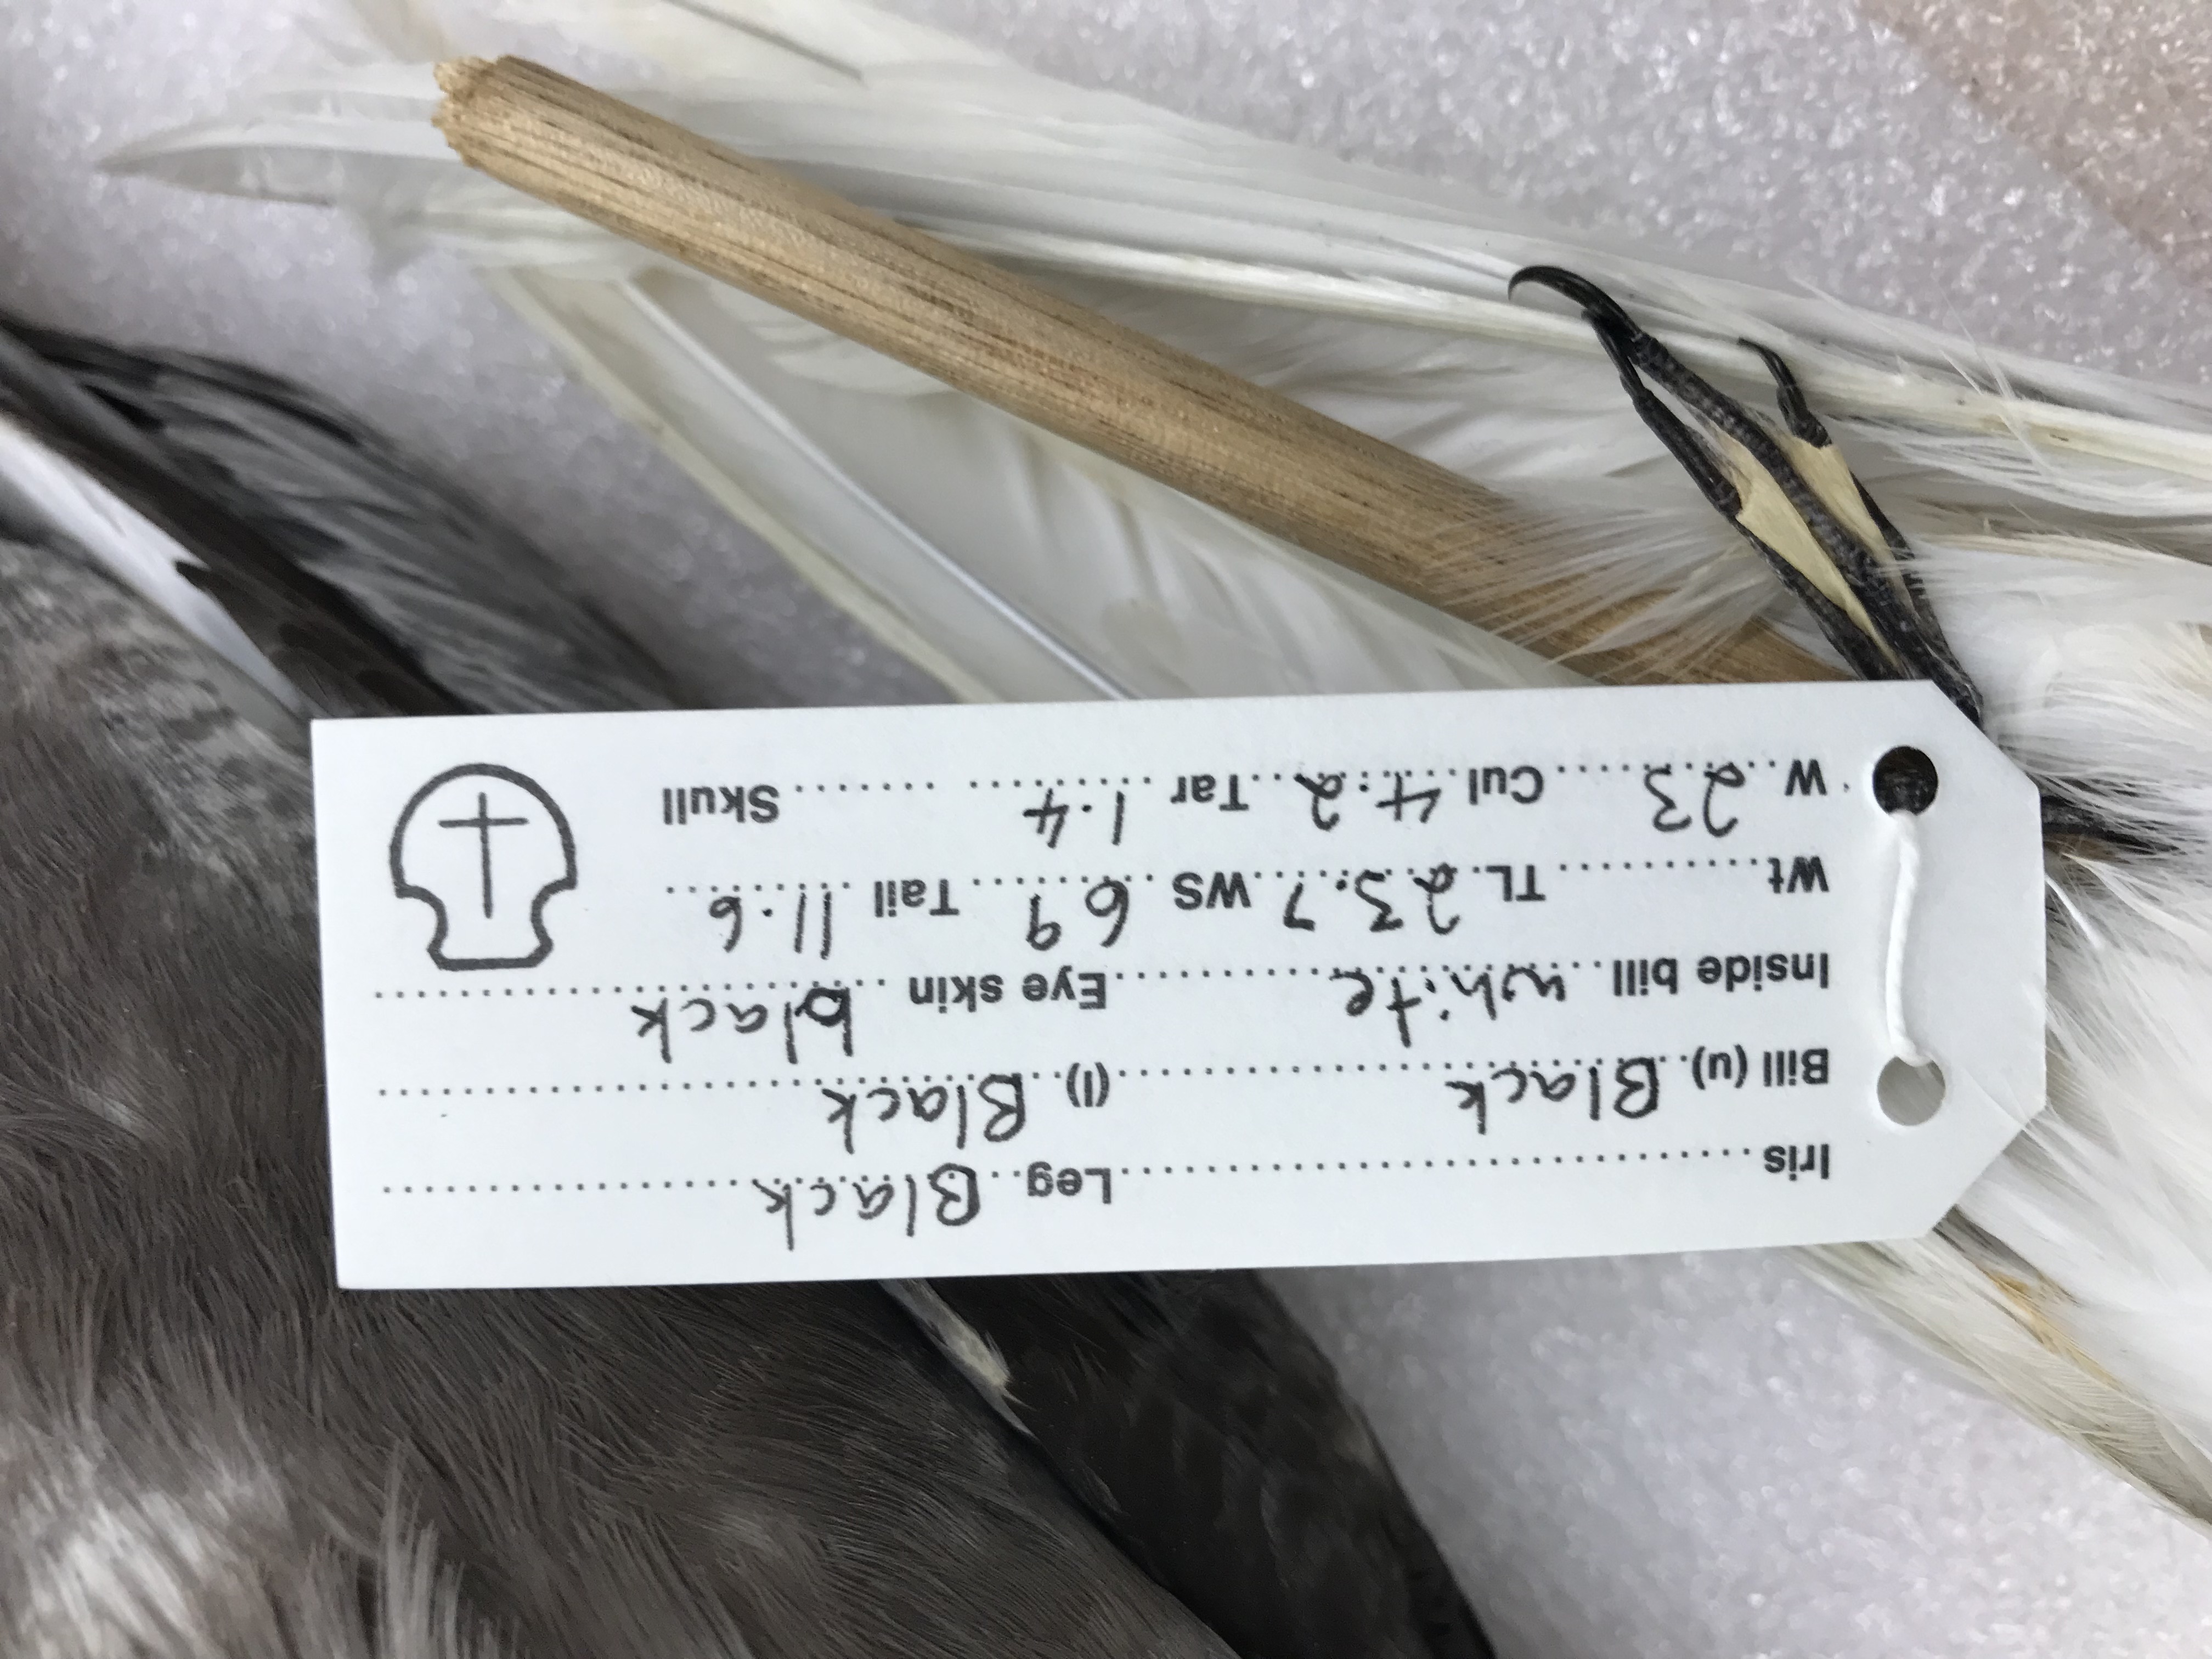 Iris.......... Leg..Black..........
Bill (u)..Black.......... (l)..Black..........
Inside bill..white..........Eye skin..black..........
Wt.......... TL.23.7..WS.69....Tail.11.6...
W..23....Cul.4.2..Tar.1.4.... ......Skull